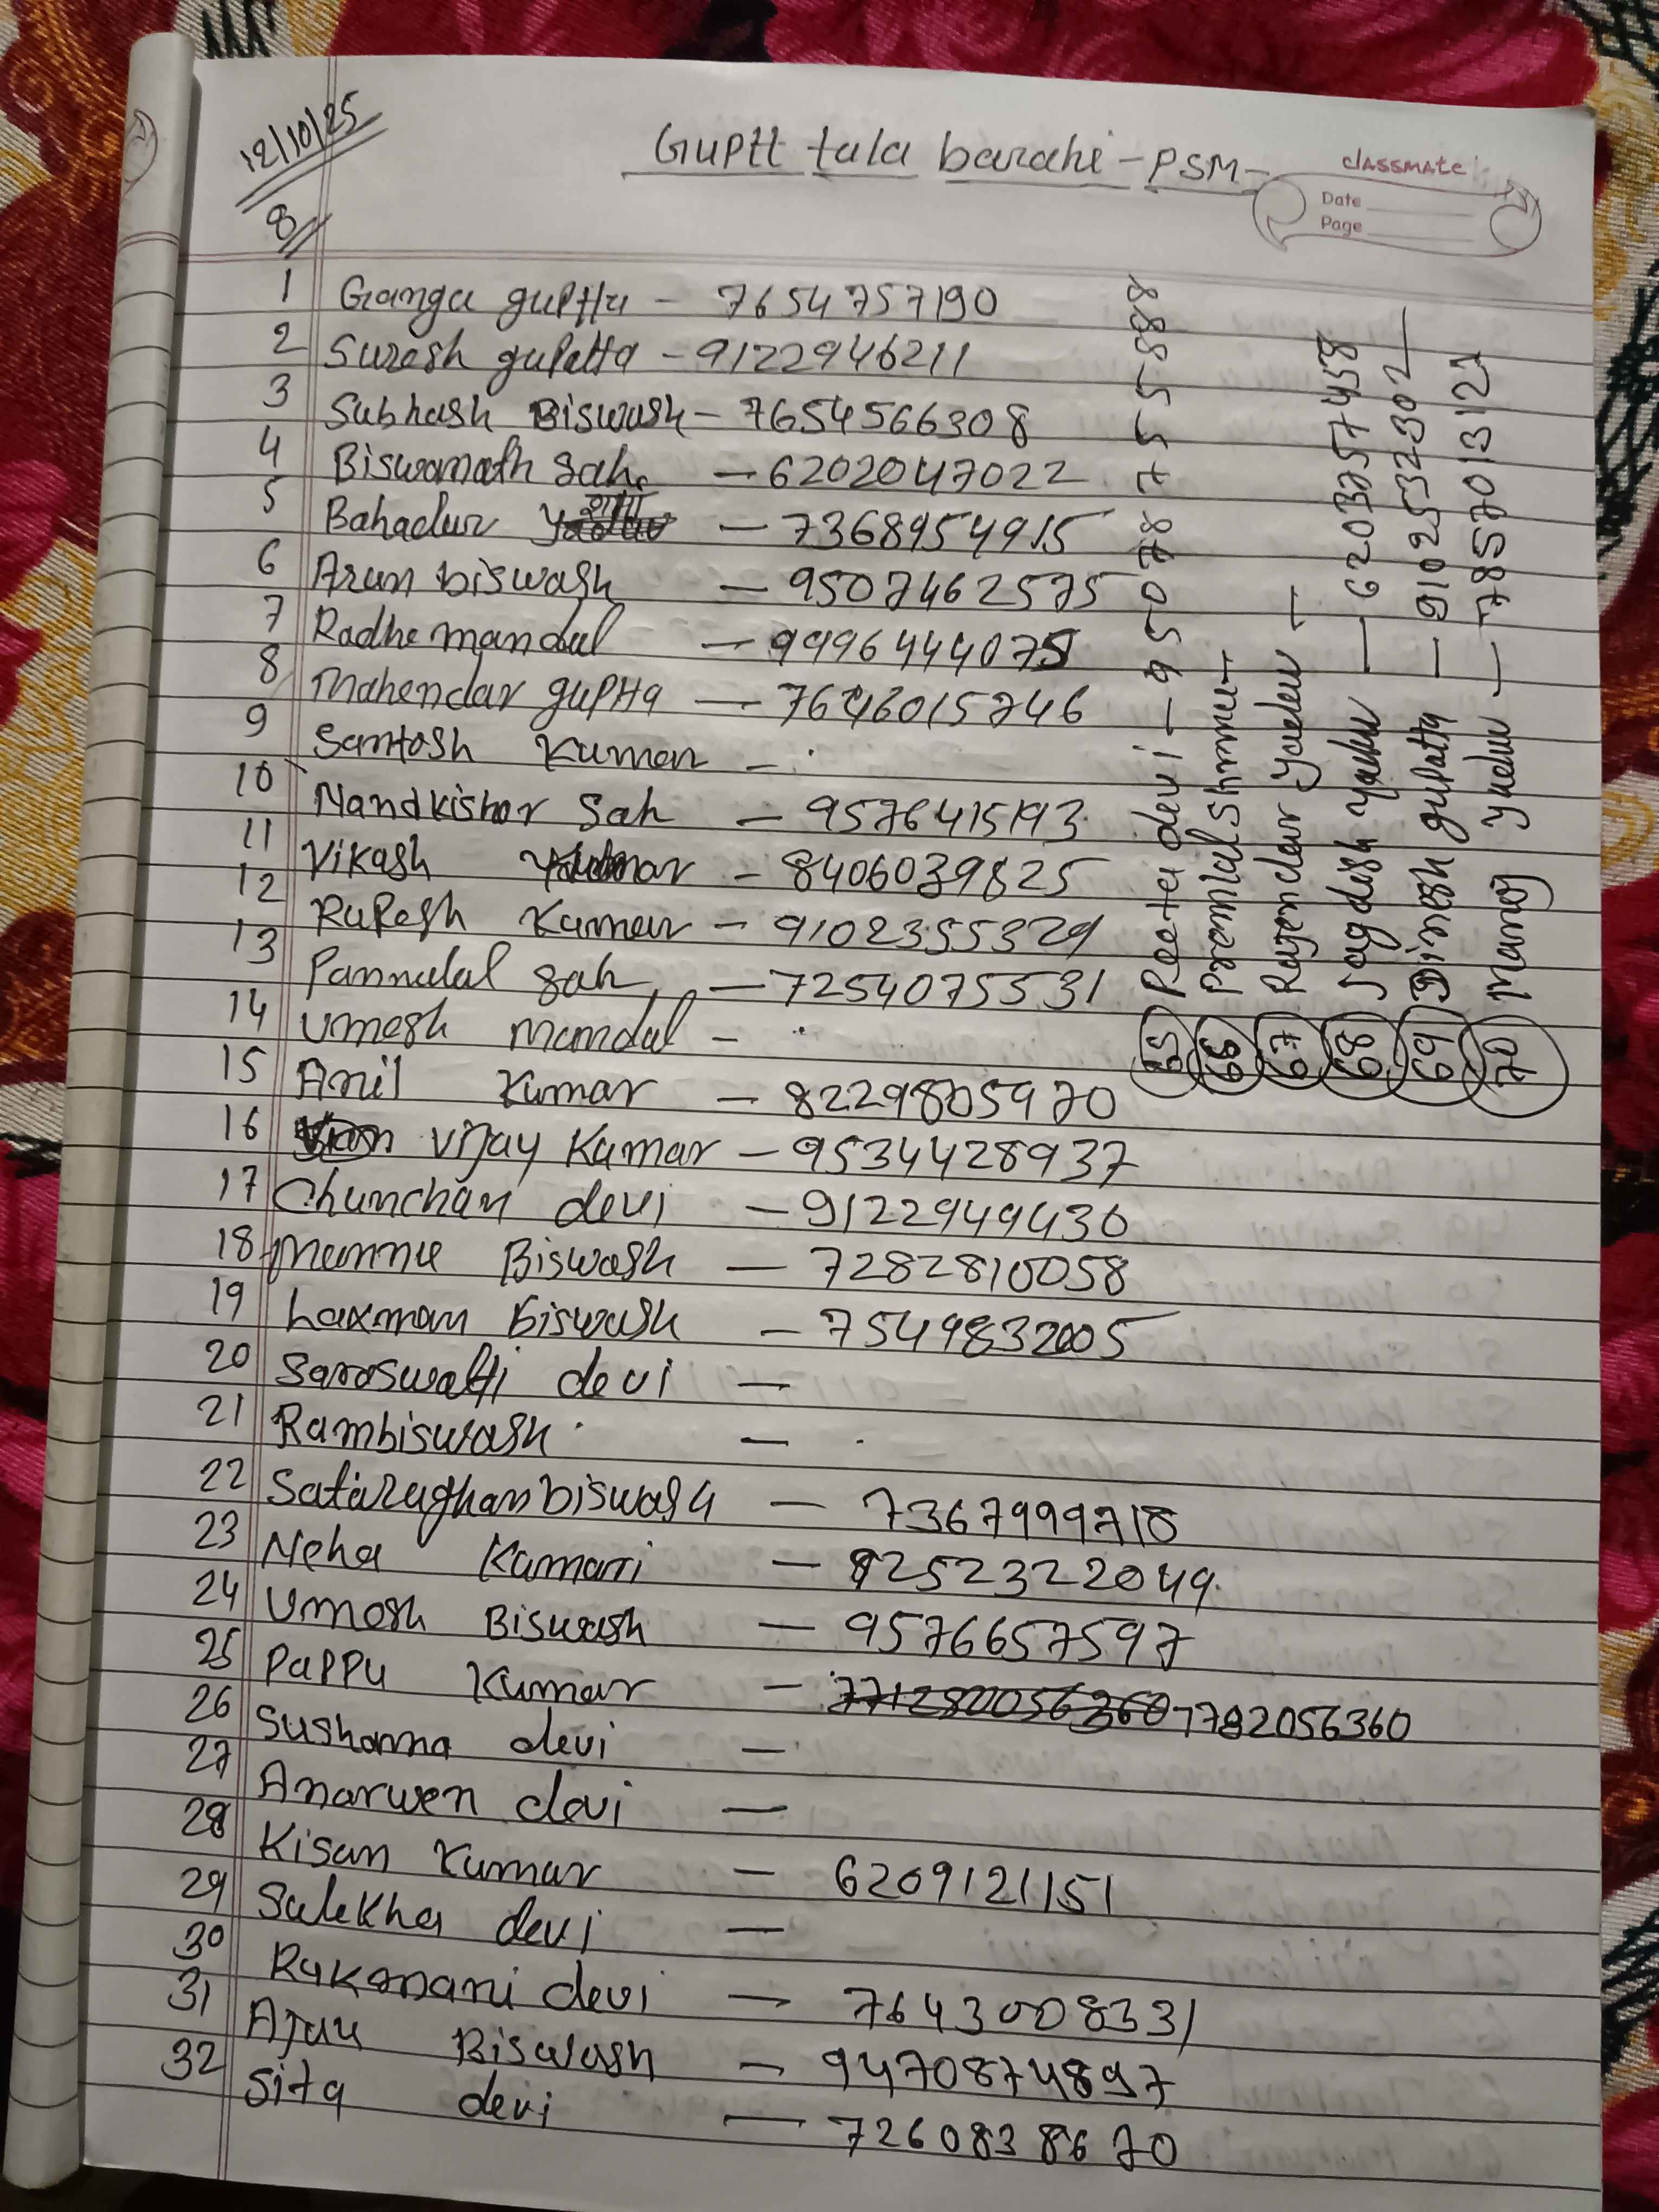 12/10/25
Guptt tala barahi - PSM -
classmate
Date
Page
8
1 Ganga guptta - 7654757190
2 Suresh gupatta - 9122946211
3 Subhash Biswash - 7654566308
4 Biswanath sah - 6202047022
5 Bahadur - 7368954915
6 Arun biswash - 9507462575
7 Radhe mandal - 9996444075
8 Mahendar guptta - 7646015746
9 Santosh Kumar -
10 Nandkishor Sah - 9576415193
11 Vikash - 8406039825
12 Rupesh Kumar - 9102355329
13 Pannalal sah - 7254075531
14 Umesh mandal -
15 Anil Kumar - 8229805970
16 Vijay Kumar - 9534428937
17 Chunchan devi - 9122949430
18 Munnu Biswash - 7282810058
19 Laxman Biswash - 7549832005
20 Saraswatti devi -
21 Rambiswash -
22 Sataraghan biswash - 7367999718
23 Neha Kumari - 9252322049
24 Umesh Biswash - 9576657597
25 Pappu Kumar - 7782056360
26 Sushanna devi -
27 Anarwen devi -
28 Kisan Kumar - 6209121151
29 Sulekha devi -
30 Rukmani devi - 7643008331
31 Ajay Biswash - 9470874897
32 Sita devi - 7260838670
65 Reeta devi - 9507875588
66 Premlal Sharma -
67 Rajendar yadav -
68 Jagdish yadav - 6203257458
69 Dinesh gupatta - 9102532302
70 Manoj yadav - 7857013121